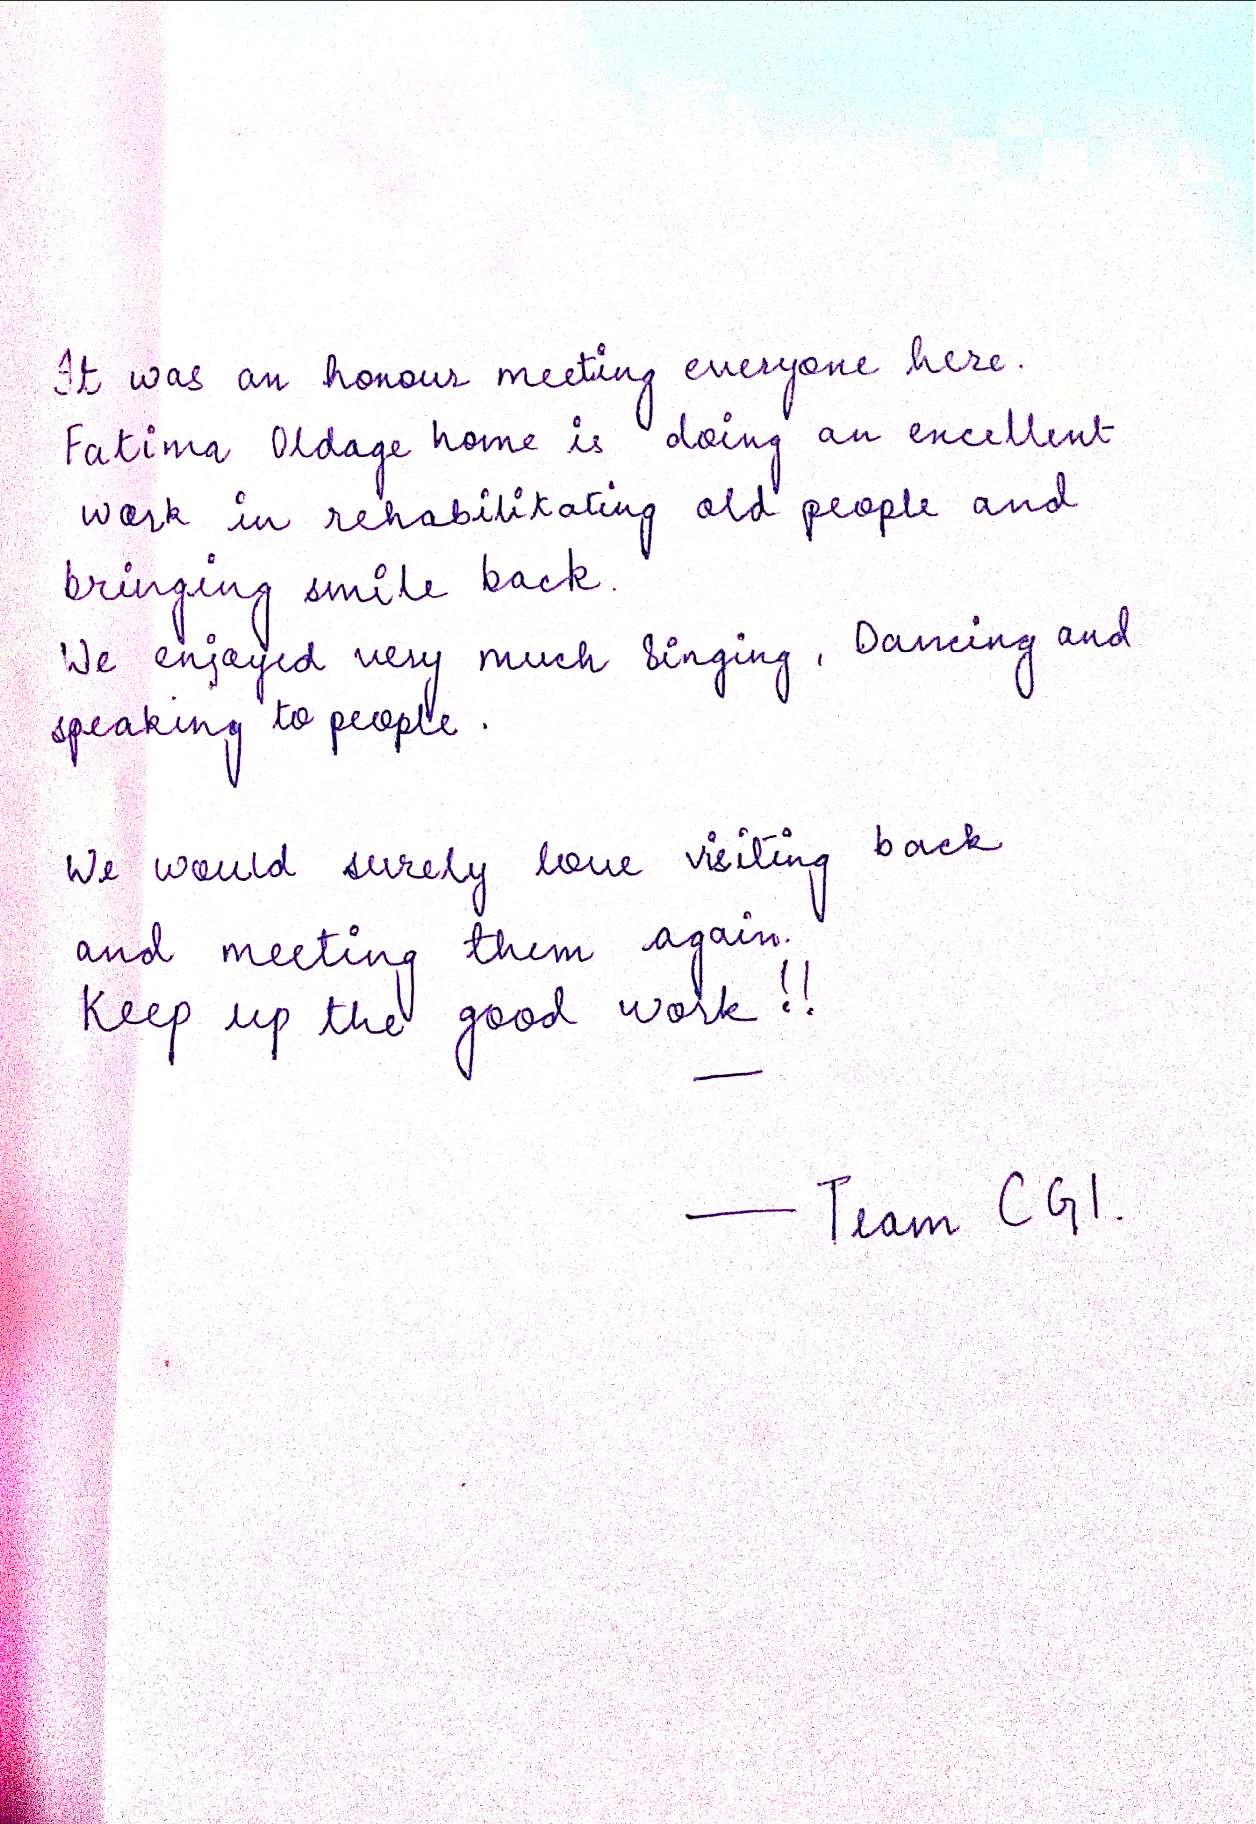 It was an honour meeting everyone here.
Fatima Oldage home is doing an excellent
work in rehabilitating old people and
bringing smile back.
We enjoyed very much Singing, Dancing and
speaking to people.
We would surely love visiting back
and meeting them again.
Keep up the good work!!
— Team CGI.